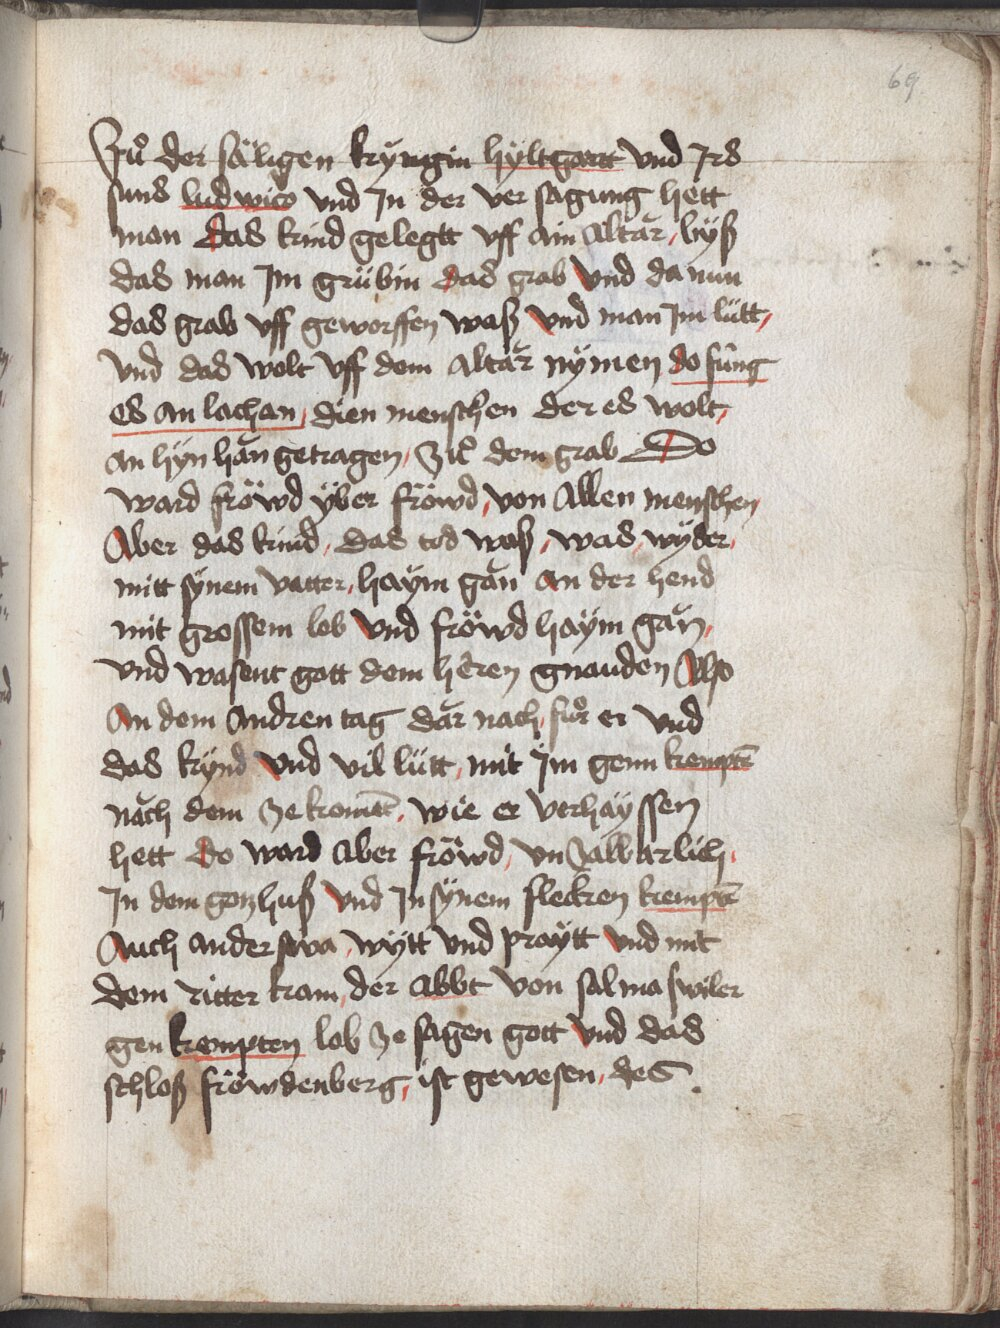 69
Zů der säligen kÿngin hÿltgartt vnd Irs
suns ludwico vnd In der ver sagung hett
man das kind gelegtt vff ain altar, byß
das man Im grübin das grab vnd da nun
das grab vff geworffen waß vnd man Im lütt,
vnd das wolt vff dem altar nÿmen do fûng
es an lachan, dien menschen der es wolt,
an hÿn hăn getragen, Zů dem grab Do
ward fröwd ÿber fröwd, von Allen menschen,
Aber das kind, das tod waß, was, wÿder,
mitt sÿnem vatter, haÿm găn an der hend
mit grossem lob vnd fröwd haÿm găn,
vnd wasent gott dem hêren gnauden Also
An dem andren tag där nach, fůr er vnd
das kÿnd vnd vil lütt, mit Im genn kemptē
năch dem ze komēt, wie er verhaÿssen
hett do ward aber fröwd, vnzalbarlich,
In dem gotzhuß vnd In sÿnem flecken kemptē
Auch anderswa, wÿtt vnd praÿtt vnd mit
dem ritter kam, der abbt von salmaswiler
gen kempten lob ze sagen gott vnd das
schloß fröwdenberg, ist gewesen, des.